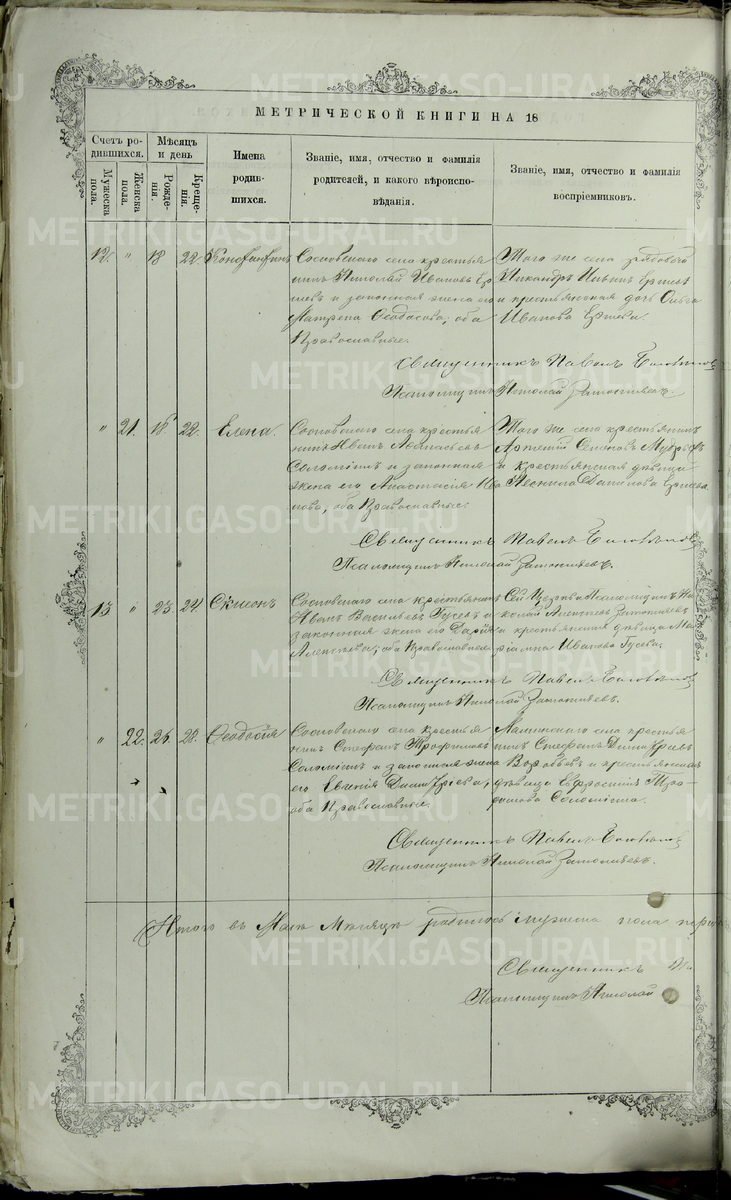 МЕТРИЧЕСКОЙ КНИГИ НА 18
Счетъ ро-
дившихся.
Мѣсяцъ
и день
Мужеска
пола.
Женска
пола.
Рожде-
нія.
Креще-
нія.
Имена
родив-
шихся.
Званіе, имя, отчество и фамилія
родителей, и какого вѣроиспо-
вѣданія.
Званіе, имя, отчество и фамилія
воспріемниковъ.
12. " 18 22. Константинъ
Сосновскаго села крестья
нинъ Николай Ивановъ Ер
шевъ и законная жена его
Матрена Ѳеодосова, оба
Православные.
Того же села рядовой
Никандръ Ершевъ
и крестьянская дочь Ольга
Иванова Ершева.
Священникъ Павелъ
Псаломщикъ Николай
" 21. 18. 22. Елена.
Сосновскаго села крестья
нинъ Иванъ Аѳанасьевъ
Соломеинъ и законная
жена его Анастасія Ива
нова, оба Православные.
Того же села крестьянинъ
Артемій Семеновъ
и крестьянская дѣвица
Леонила Ершева.
Священникъ Павелъ
Псаломщикъ Николай
13 " 23. 24 Симеонъ
Сосновскаго села крестьянинъ
Иванъ Васильевъ Гусевъ и
законная жена его Дарья
Алексѣева, оба Православные.
Псаломщикъ Ни
колай Алексѣевъ
и крестьянская дѣвица Ма
ріамна Иванова Гусева.
Священникъ Павелъ
Псаломщикъ Николай
" 22. 25. 28. Ѳеодосія
Сосновскаго села крестья
нинъ Стефанъ Трофимовъ
Соломеинъ и законная жена
его Евгенія Димитріева,
оба Православные.
села крестья
нинъ Стефанъ Димитріевъ
Воробьевъ и крестьянская
дѣвица Евфросинія Тро-
фимова Соломеина.
Священникъ Павелъ
Псаломщикъ Николай
Итого въ Маѣ Мѣсяцѣ родилось мужеска пола
Священникъ Па
Псаломщикъ Николай
METRIKI.GASO-URAL.RU